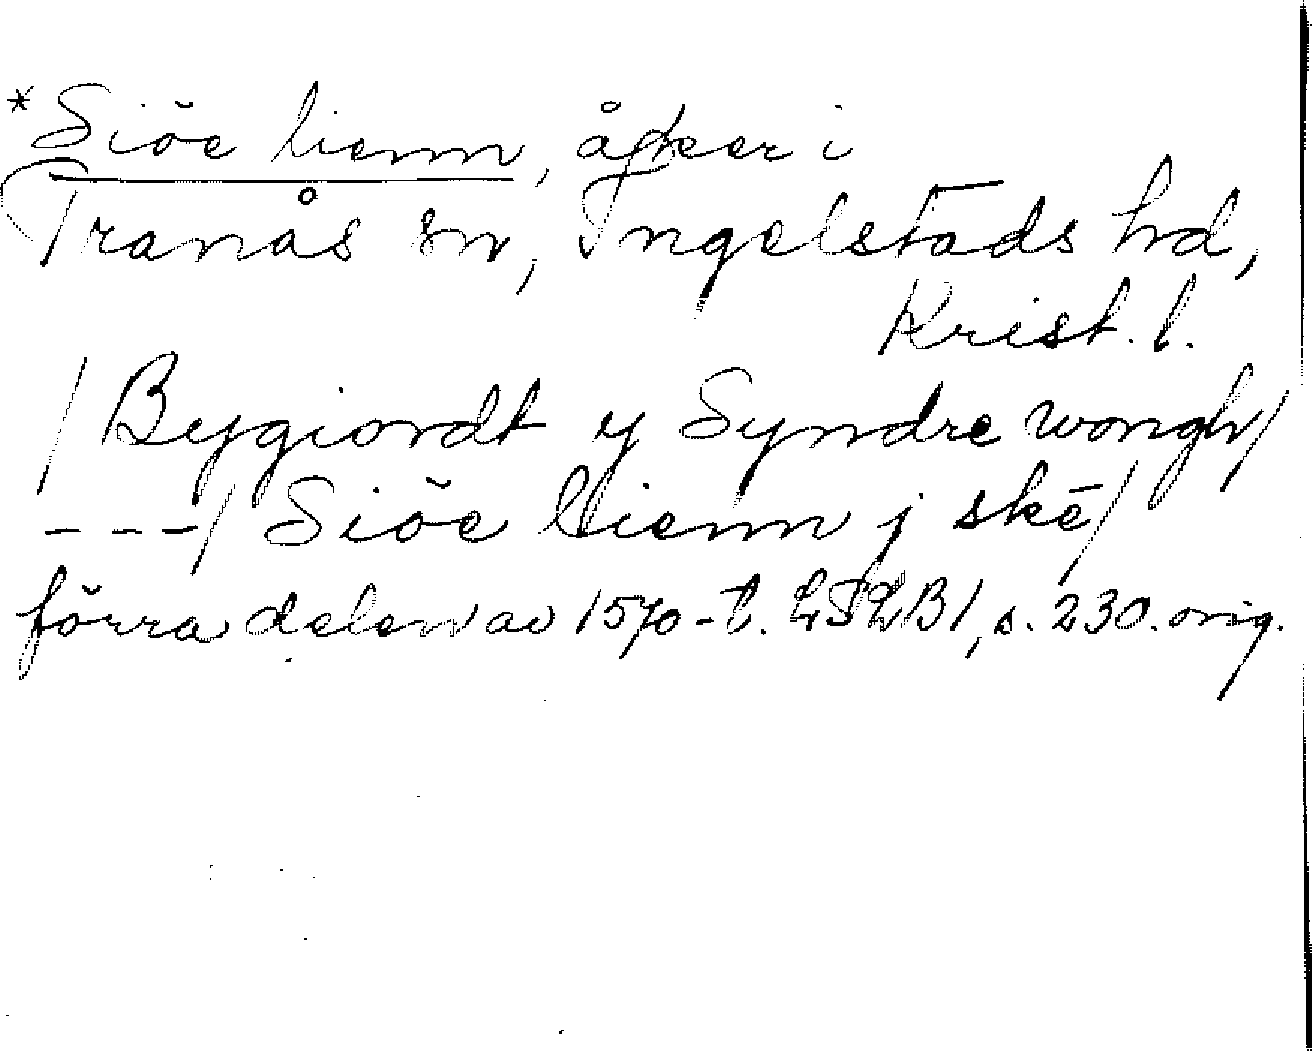 *Siöe lienn, åker i
Tranås sn, Ingelstads hd,
Krist. l.
/Bygiordt y Syndre wongh/
---/ Siöe Lienn j ske/
förra delen av 1570-t. LSLB1, s. 230. orig.